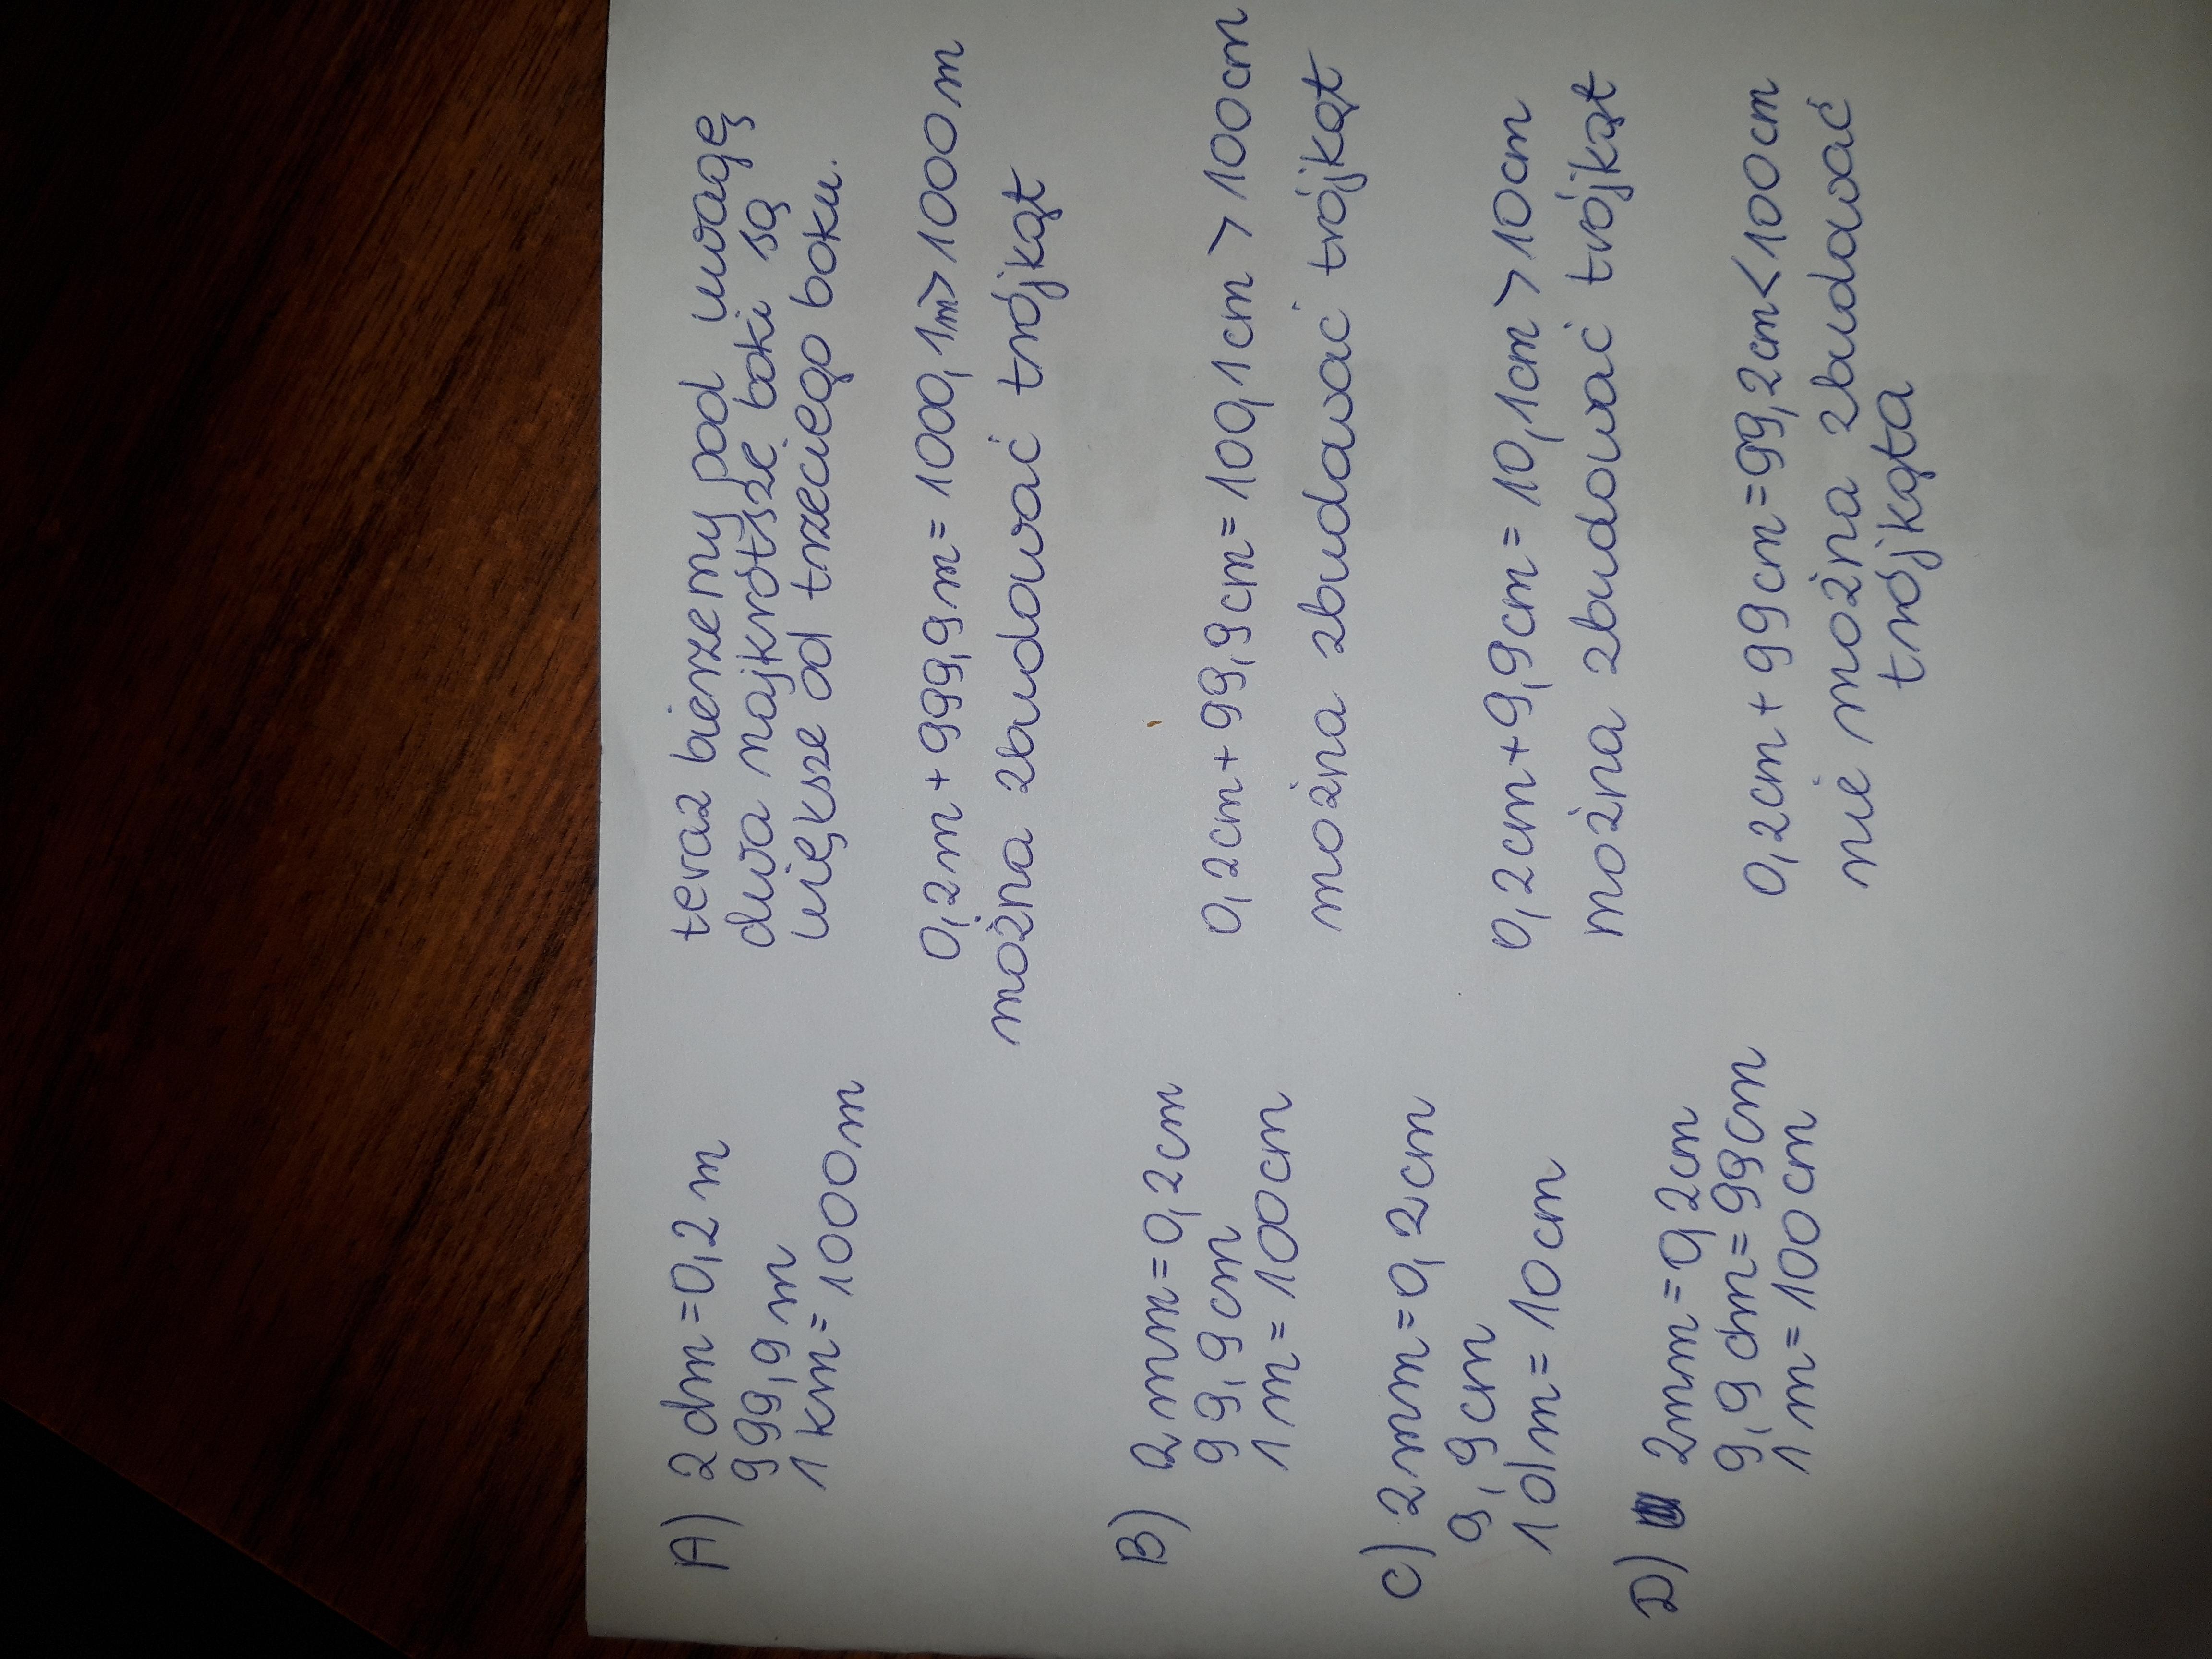 A) 2dm=0,2m
999,9m
1km=1000m
teraz bierzemy pod uwagę
dwa najkrótsze boki są
większe od trzeciego boku.
0,2m+999,9m=1000,1m>1000m
można zbudować trójkąt
B) 2mm=0,2cm
99,9cm
1m=100cm
0,2cm+99,9cm=100,1cm>100cm
można zbudować trójkąt
C) 2mm=0,2cm
9,9cm
1dm=10cm
0,2cm+9,9cm=10,1cm>10cm
można zbudować trójkąt
D) 2mm=0,2cm
9,9dm=99cm
1m=100cm
0,2cm+99cm=99,2cm<100cm
nie można zbudować
trójkąta